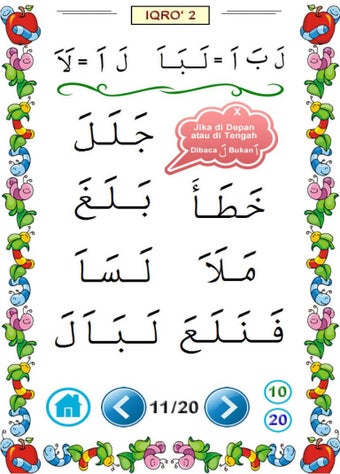 IQRO' 2
لَ بَ اَ = لَـبَـاَ   لَ اَ = لَاَ
X
Jika di Depan
atau di Tengah
Dibaca لَ Bukan اَ
جَـلَـلَ
خَـطَـأَ   بَـلَـغَ
مَـلَاَ   لَـسَـاَ
فَـنَـلَـعَ   لَـبَـاَلَ
11/20
10
20